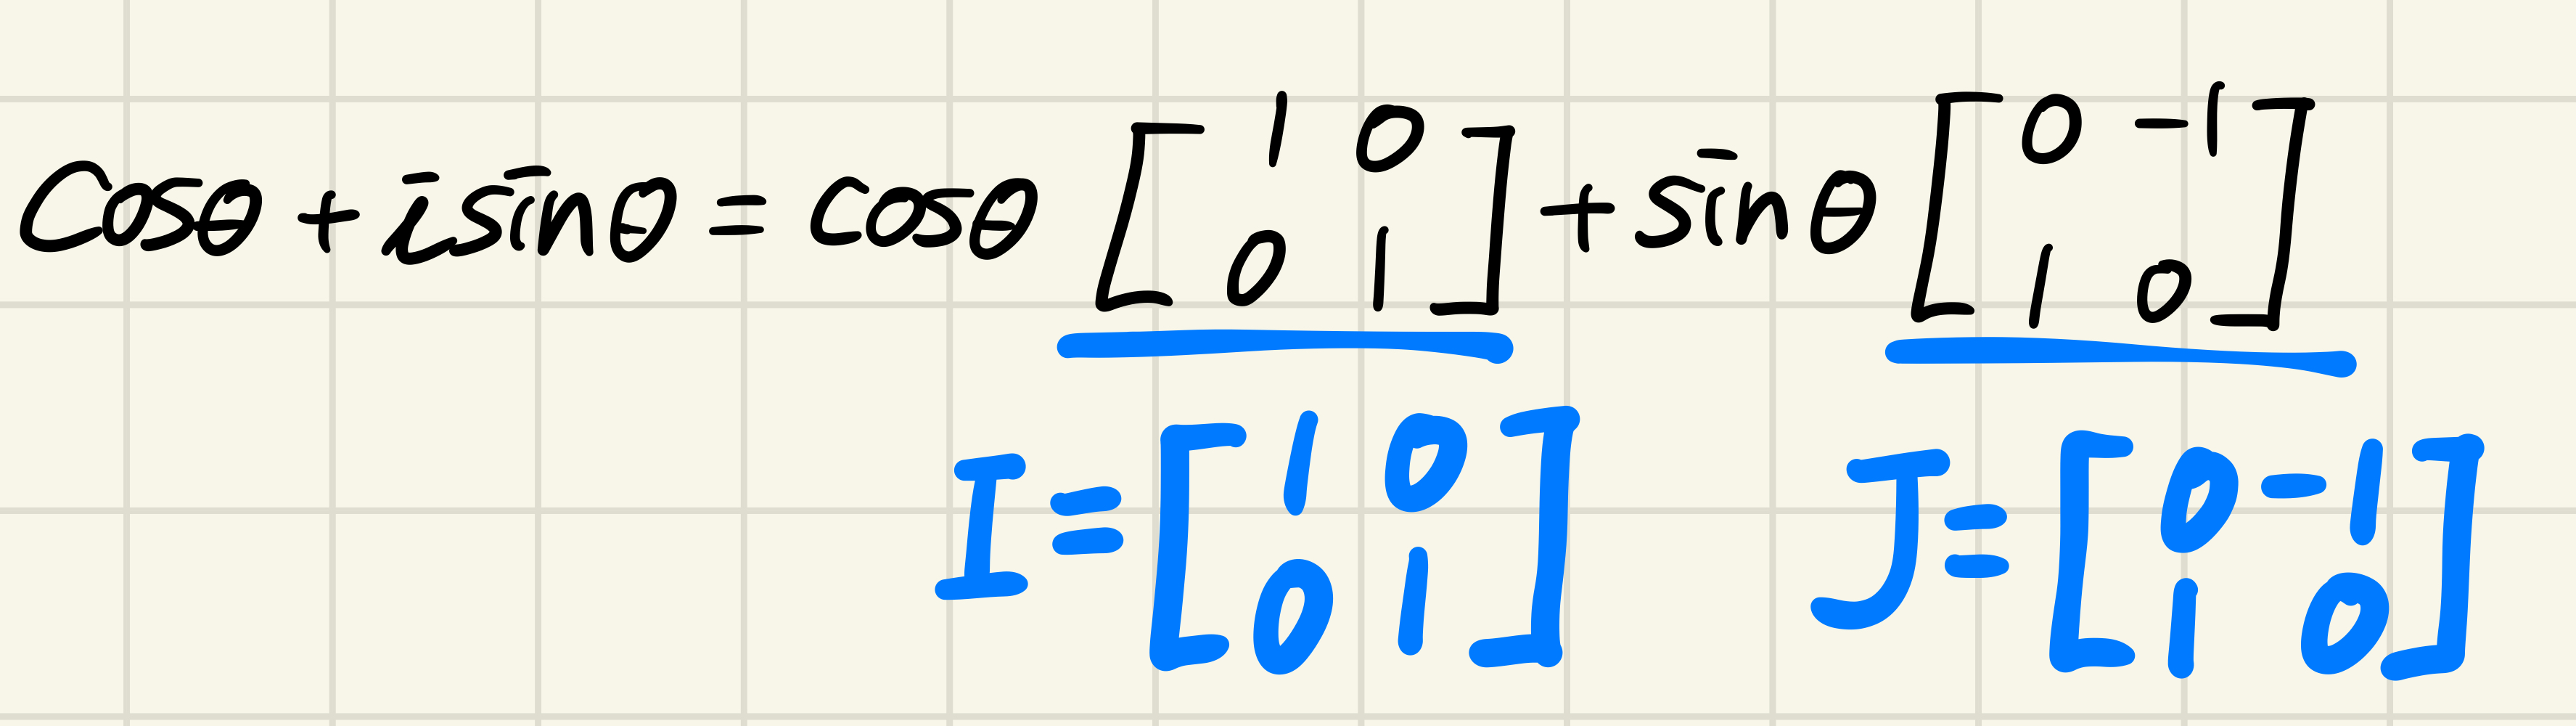 cosθ + isinθ = cosθ [1 0; 0 1] + sinθ [0 -1; 1 0]
I = [1 0; 0 1]
J = [0 -1; 1 0]